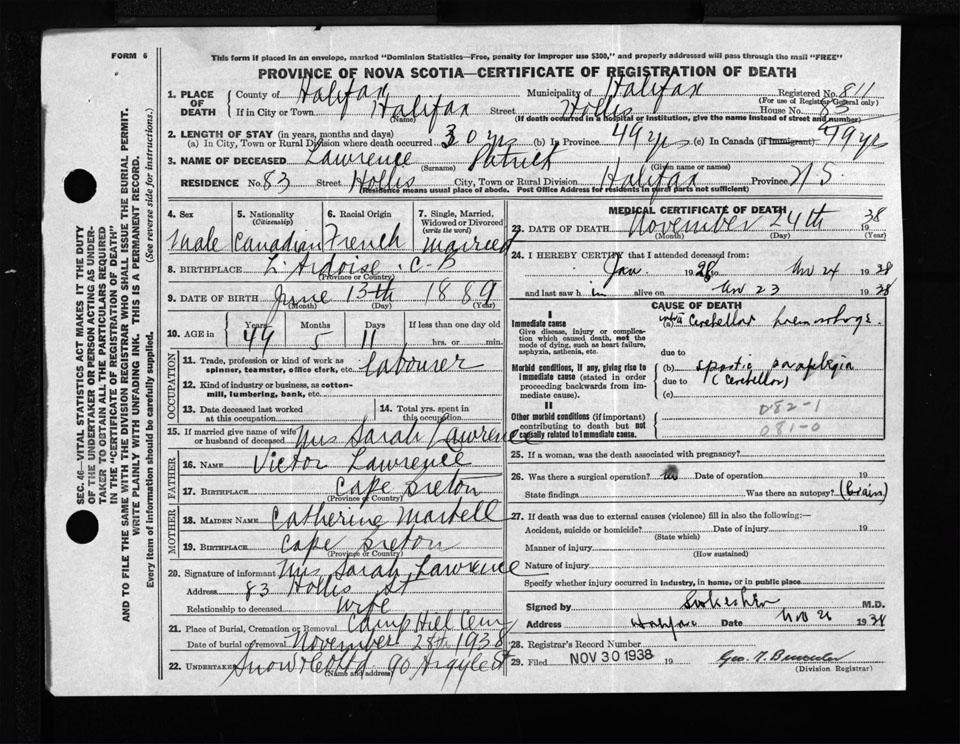 FORM 6
This form if placed in an envelope, marked "Dominion Statistics—Free, penalty for improper use $300," and properly addressed will pass through the mail "FREE"
PROVINCE OF NOVA SCOTIA—CERTIFICATE OF REGISTRATION OF DEATH
1. PLACE OF DEATH County of Halifax Municipality of Halifax Registered No. 811
(For use of Registrar General only)
If in City or Town Halifax Street Hollis House No. 83
(Name) (If death occurred in a hospital or institution, give the name instead of street and number)
2. LENGTH OF STAY (in years, months and days)
(a) In City, Town or Rural Division where death occurred 30 yrs (b) In Province 49 yrs (c) In Canada (if immigrant) 49 yrs
3. NAME OF DECEASED Lawrence Patrick
(Surname) (Given name or names)
RESIDENCE No. 83 Street Hollis City, Town or Rural Division Halifax Province N S.
(Residence means usual place of abode. Post Office Address for residents in rural parts not sufficient)
4. Sex 5. Nationality (Citizenship) 6. Racial Origin 7. Single, Married, Widowed or Divorced (write the word)
Male Canadian French Married
8. BIRTHPLACE L'Ardoise C-B
(Province or Country)
9. DATE OF BIRTH June 13th 1889
(Month) (Day) (Year)
10. AGE in Years Months Days If less than one day old
49 5 11 hrs. or min.
OCCUPATION
11. Trade, profession or kind of work as spinner, teamster, office clerk, etc. Labourer
12. Kind of industry or business, as cotton-mill, lumbering, bank, etc.
13. Date deceased last worked at this occupation 14. Total yrs. spent in this occupation
15. If married give name of wife or husband of deceased Mrs Sarah Lawrence
FATHER
16. NAME Victor Lawrence
17. BIRTHPLACE Cape Breton
(Province or Country)
MOTHER
18. MAIDEN NAME Catherine Martell
19. BIRTHPLACE Cape Breton
(Province or Country)
20. Signature of informant Mrs Sarah Lawrence
Address 83 Hollis St
Relationship to deceased Wife
21. Place of Burial, Cremation or Removal Camp Hill Cem
Date of burial or removal November 28th 1938
22. UNDERTAKER Snow & Co Ltd 90 Argyle St
(Name and address)
MEDICAL CERTIFICATE OF DEATH
23. DATE OF DEATH November 24th 1938
(Month) (Day) (Year)
24. I HEREBY CERTIFY that I attended deceased from:
Jan. 1928 to Nov 24 1938
and last saw him alive on Nov 23 1938
CAUSE OF DEATH
I
Immediate cause
Give disease, injury or complication which caused death, not the mode of dying, such as heart failure, asphyxia, asthenia, etc.
(a) intra Cerebellar hemorrhage.
due to
Morbid conditions, if any, giving rise to immediate cause (stated in order proceeding backwards from immediate cause).
(b) spastic paraplegia
due to (Cerebellar)
(c)
II
Other morbid conditions (if important) contributing to death but not causally related to immediate cause.
082-1
081-0
25. If a woman, was the death associated with pregnancy?
26. Was there a surgical operation? no Date of operation 19
State findings Was there an autopsy? (brain)
27. If death was due to external causes (violence) fill in also the following:—
Accident, suicide or homicide? Date of injury 19
(State which)
Manner of injury
(How sustained)
Nature of injury
Specify whether injury occurred in industry, in home, or in public place
Signed by M.D.
Address Halifax Date Nov 26 1938
28. Registrar's Record Number
29. Filed NOV 30 1938 19 Geo.
(Division Registrar)
SEC. 46—VITAL STATISTICS ACT MAKES IT THE DUTY
OF THE UNDERTAKER OR PERSON ACTING AS UNDER-
TAKER TO OBTAIN ALL THE PARTICULARS REQUIRED
IN THE "CERTIFICATE OF REGISTRATION OF DEATH"
AND TO FILE THE SAME WITH THE DIVISION REGISTRAR WHO SHALL ISSUE THE BURIAL PERMIT.
WRITE PLAINLY WITH UNFADING INK. THIS IS A PERMANENT RECORD.
Every item of information should be carefully supplied. (See reverse side for instructions.)